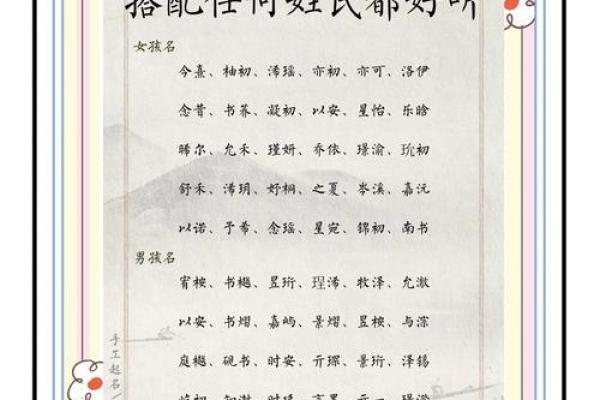 搭配任何姓氏都好听
女孩名
今熹、柚初、浠瑶、亦初、亦可、洛伊
念昔、书荞、凝初、以安、星怡、乐晗
晞尔、允禾、瑾妍、乔依、璟渝、玧初
舒禾、浠玥、妤桐、之夏、岑溪、嘉沅
以诺、予希、念瑶、星宛、锦初、南书
男孩名
宥桉、书樾、昱珩、珵浠、牧泽、允澈
以安、书熠、嘉屿、景熠、昱桉、与淙
庭樾、砚书、时安、亓琛、景珩、泽锡
手工起名